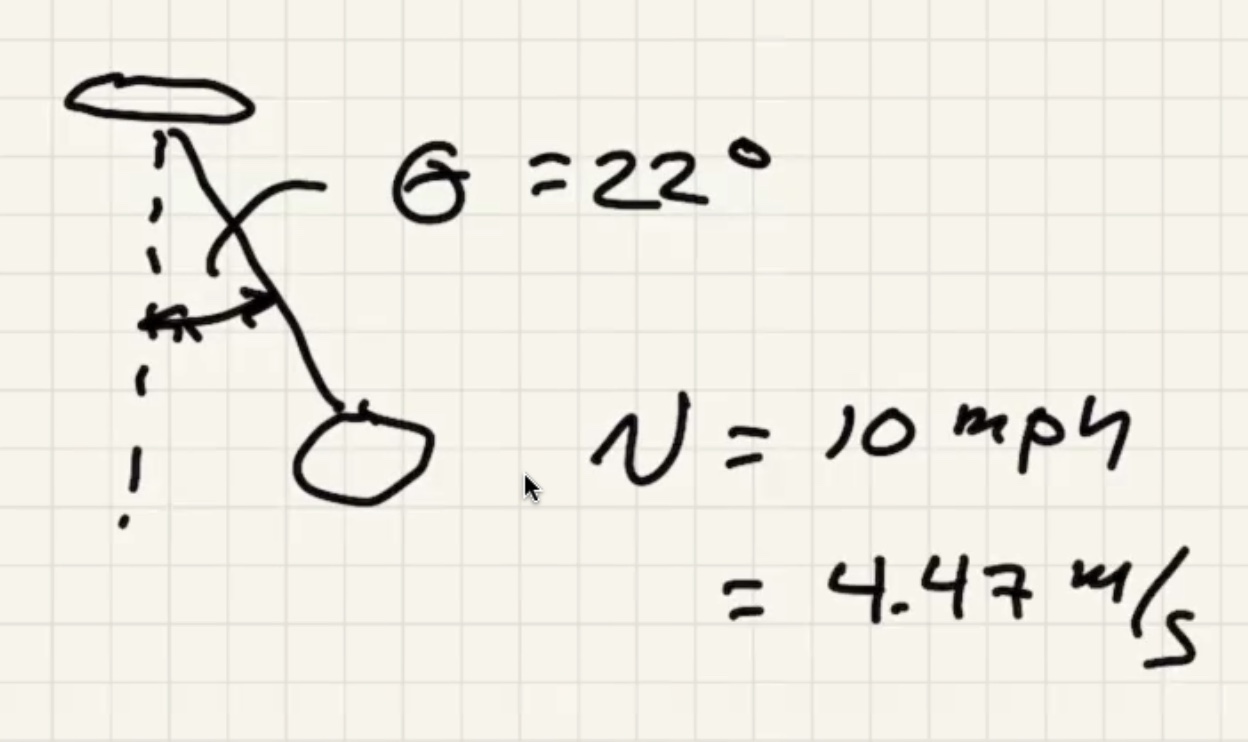 θ = 22°
v = 10 mph
= 4.47 m/s